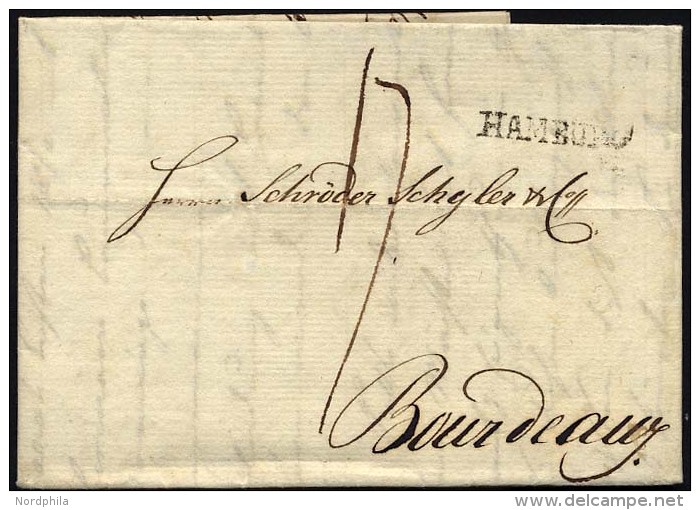 HAMBURG
17
Herren Schröder Schyler & Co.
Bourdeaux.
Nordphila
delcampe.net